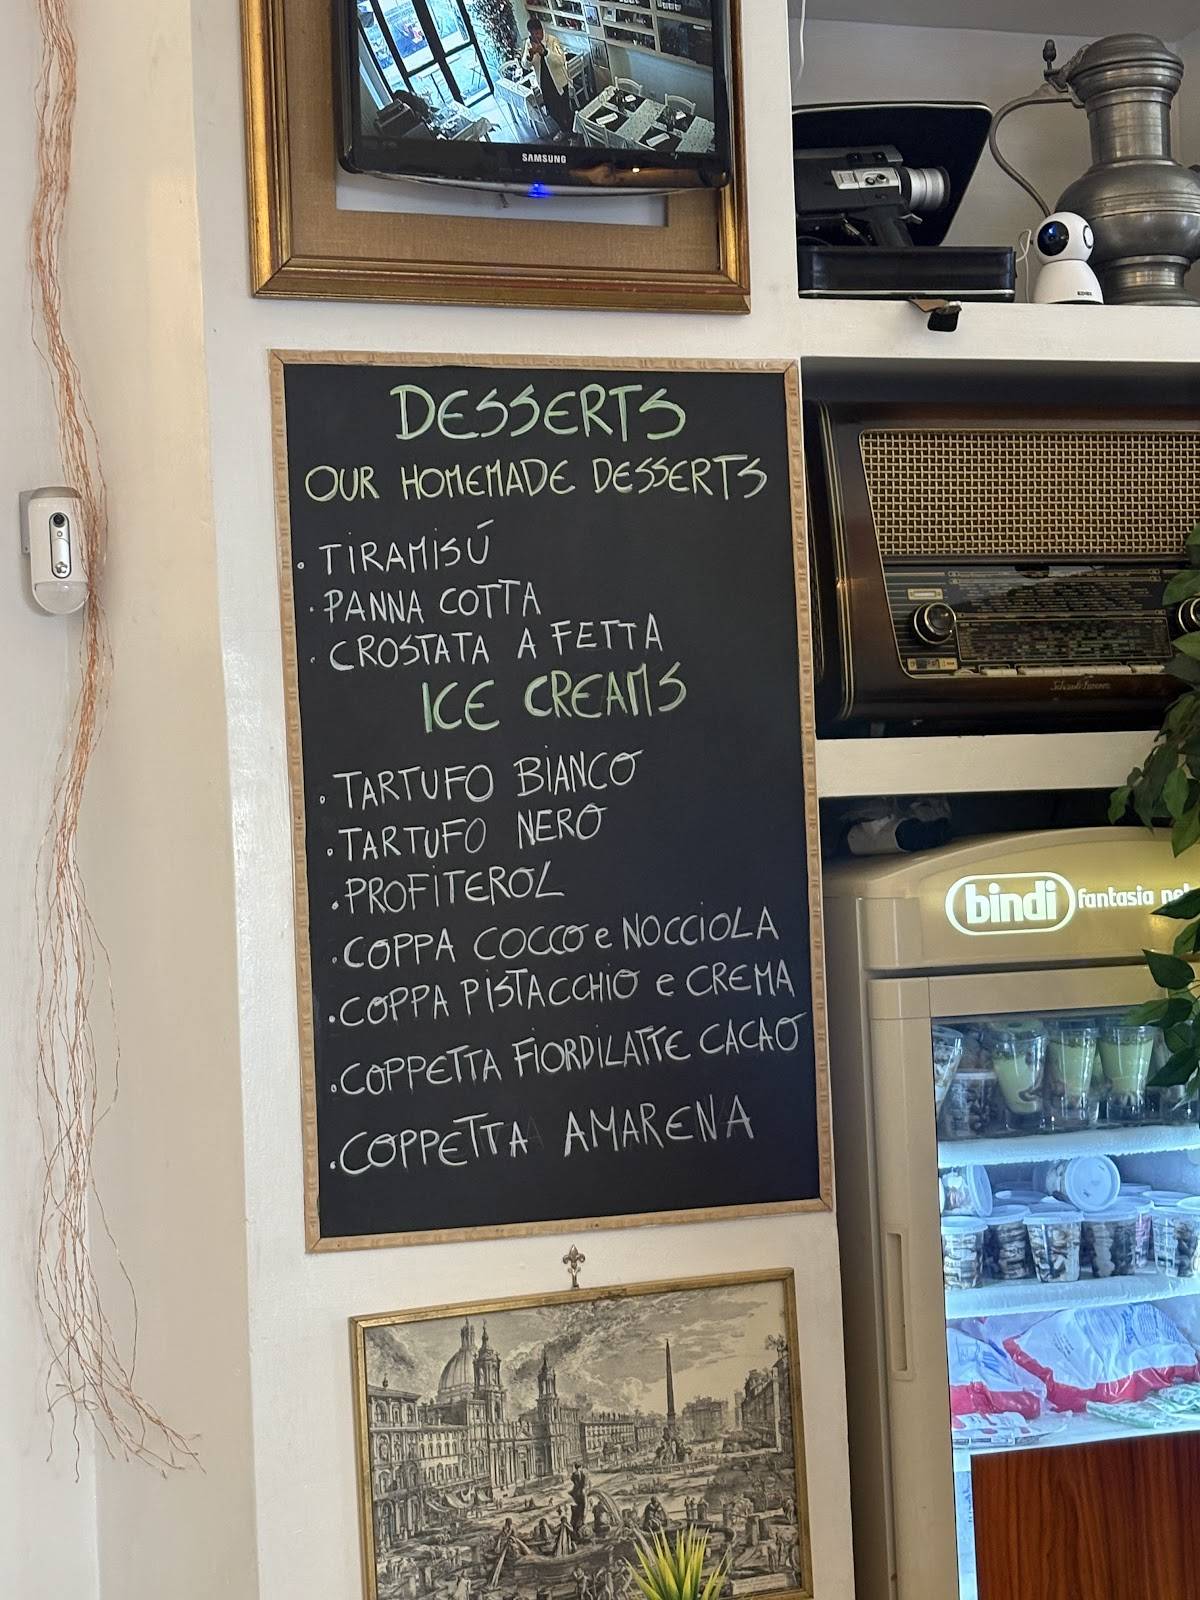 SAMSUNG
DESSERTS
OUR HOMEMADE DESSERTS
• TIRAMISÚ
• PANNA COTTA
• CROSTATA A FETTA
ICE CREAMS
• TARTUFO BIANCO
• TARTUFO NERO
• PROFITEROL
• COPPA COCCO e NOCCIOLA
• COPPA PISTACCHIO e CREMA
• COPPETTA FIORDILATTE CACAO
• COPPETTA AMARENA
bindi fantasia